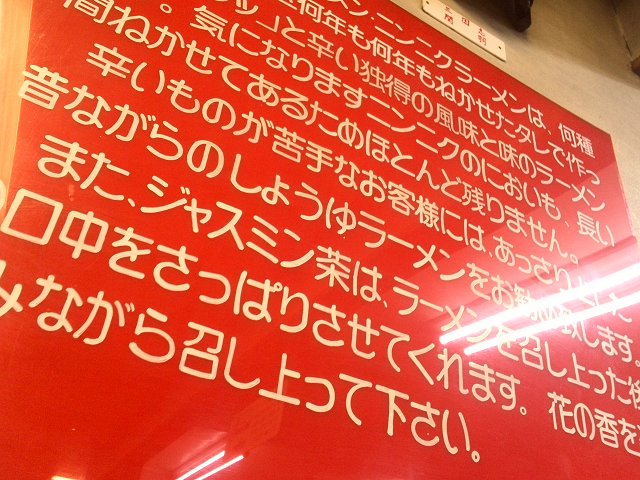 三国志
関羽
メン・ニンニクラーメンは、何種
何年も何年もねかせたタレで作っ
ッ」と辛い独得の風味と味のラーメン
。気になりますニンニクのにおいも、長い
間ねかせてあるためほとんど残りません。
辛いものが苦手なお客様には、あっさりとした
昔ながらのしょうゆラーメンをお勧め致します。
また、ジャスミン茶は、ラーメンを召し上った後
口中をさっぱりさせてくれます。花の香を
みながら召し上って下さい。